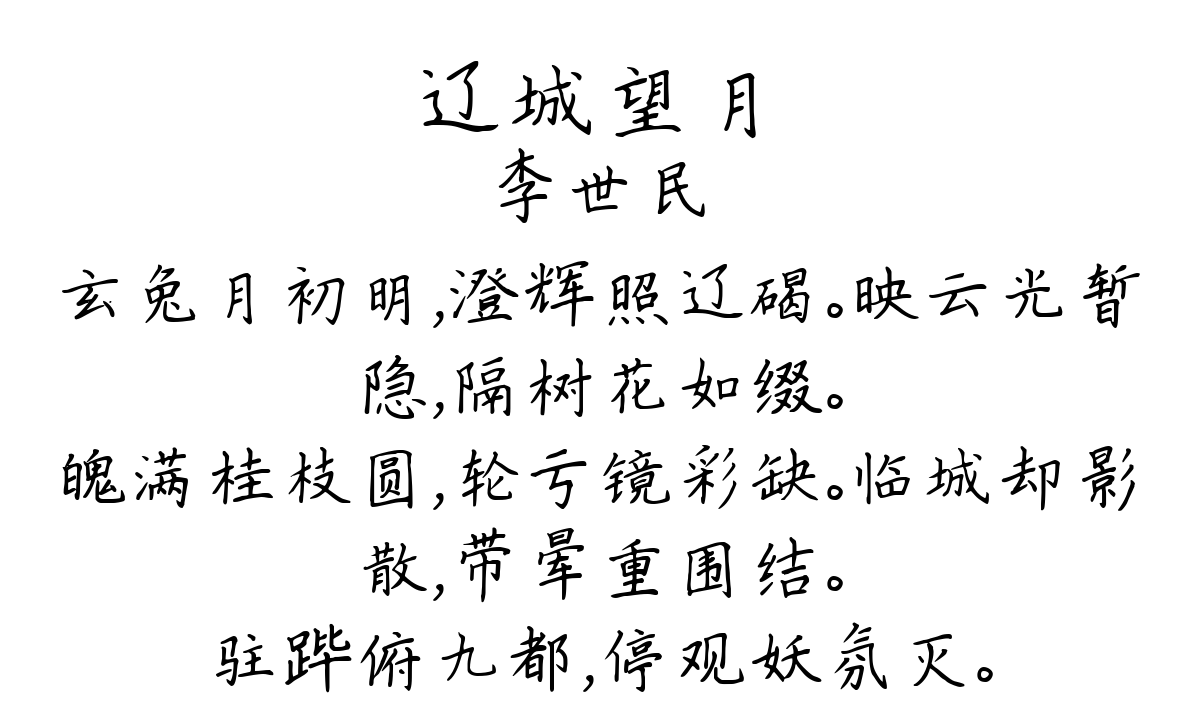 辽城望月
李世民
玄兔月初明,澄辉照辽碣。映云光暂
隐,隔树花如缀。
魄满桂枝圆,轮亏镜彩缺。临城却影
散,带晕重围结。
驻跸俯九都,停观妖氛灭。